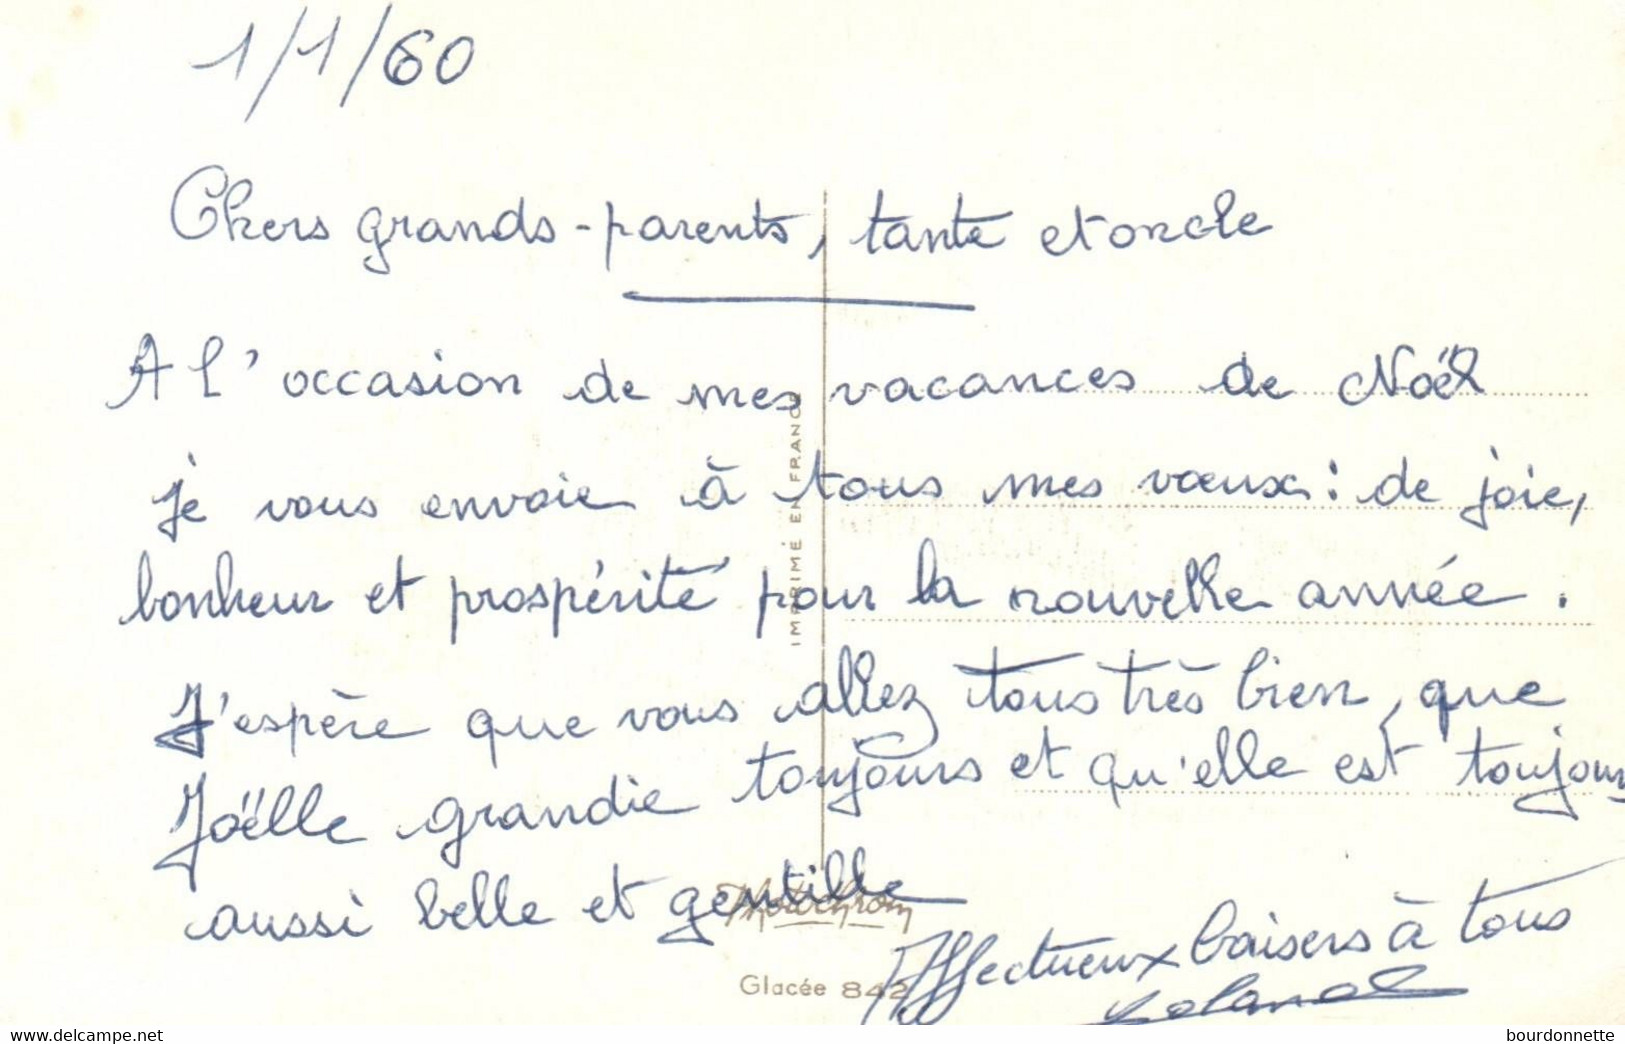 1/1/60
Chers grands-parents, tante et oncle
A l'occasion de mes vacances de Noël
je vous envoie à tous mes vœux : de joie,
bonheur et prospérité pour la nouvelle année.
J'espère que vous allez tous très bien, que
Joëlle grandie toujours et qu'elle est toujours
aussi belle et gentille
Affectueux baisers à tous
Roland
IMPRIMÉ EN FRANCE
Photochrom
Glacée 842
https://www.delcampe.net
bourdonnette